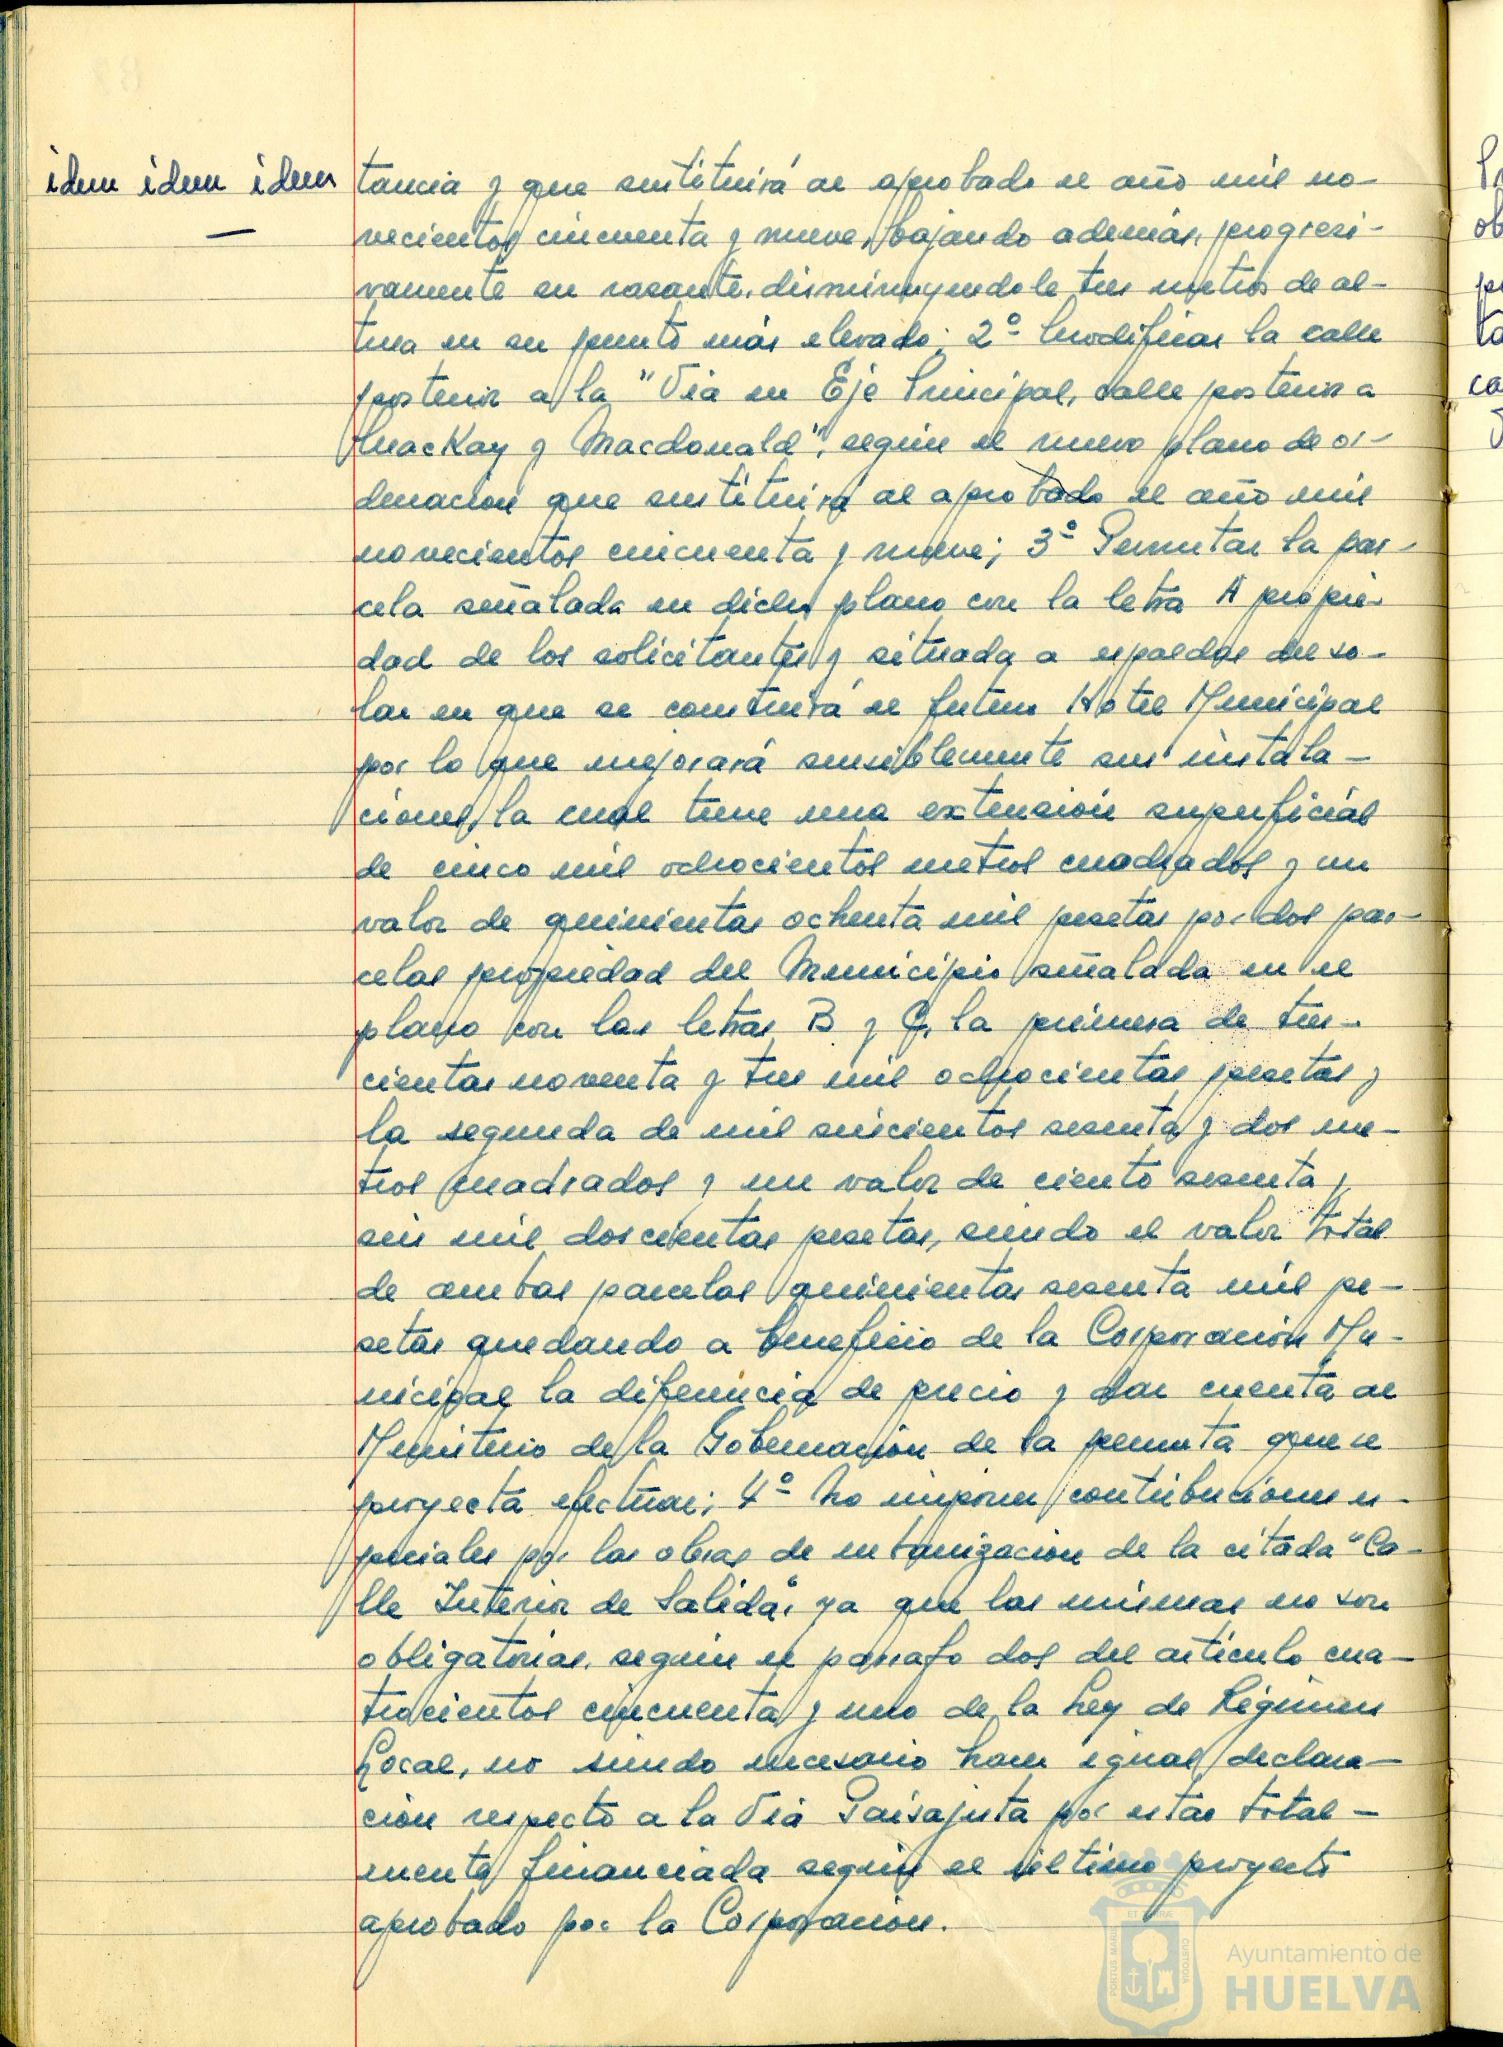 idem idem idem
tancia y que sustituirá al aprobado el año mil no-
vecientos cincuenta y nueve, bajando además, progresi-
vamente su rasante, disminuyendole tres metros de al-
tura en su punto más elevado; 2º Modificar la calle
posterior a la "Via en Eje Principal, calle posterior a
MacKay y Macdonald", según el nuevo plano de or-
denación que sustituirá al aprobado el año mil
novecientos cincuenta y nueve; 3º Permutar la par-
cela señalada en dicho plano con la letra A propie-
dad de los solicitantes y situada a espaldas del so-
lar en que se construirá el futuro Hotel Municipal
por lo que mejorará sensiblemente sus instala-
ciones, la cual tiene una extensión superficial
de cinco mil ochocientos metros cuadrados y un
valor de quinientas ochenta mil pesetas por dos par-
celas propiedad del Municipio señalada en el
plano con las letras B y C, la primera de tres-
cientas noventa y tres mil ochocientas pesetas y
la segunda de mil seiscientos sesenta y dos me-
tros cuadrados y un valor de ciento sesenta y
seis mil doscientas pesetas, siendo el valor total
de ambas parcelas quinientas sesenta mil pe-
setas quedando a beneficio de la Corporación Mu-
nicipal la diferencia de precio y dar cuenta al
Ministerio de la Gobernación de la permuta que se
proyecta efectuar; 4º No imponer contribuciones es-
peciales por las obras de urbanización de la citada "Ca-
lle Interior de Salida", ya que las mismas no son
obligatorias, según el parrafo dos del artículo cua-
trocientos cincuenta y uno de la Ley de Régimen
Local, no siendo necesario hacer igual declara-
ción respecto a la Via Paisajista por estar total-
mente financiada según el último proyecto
aprobado por la Corporación.
PORTUS MARIS
ET TERRÆ
CUSTODIA
Ayuntamiento de
HUELVA